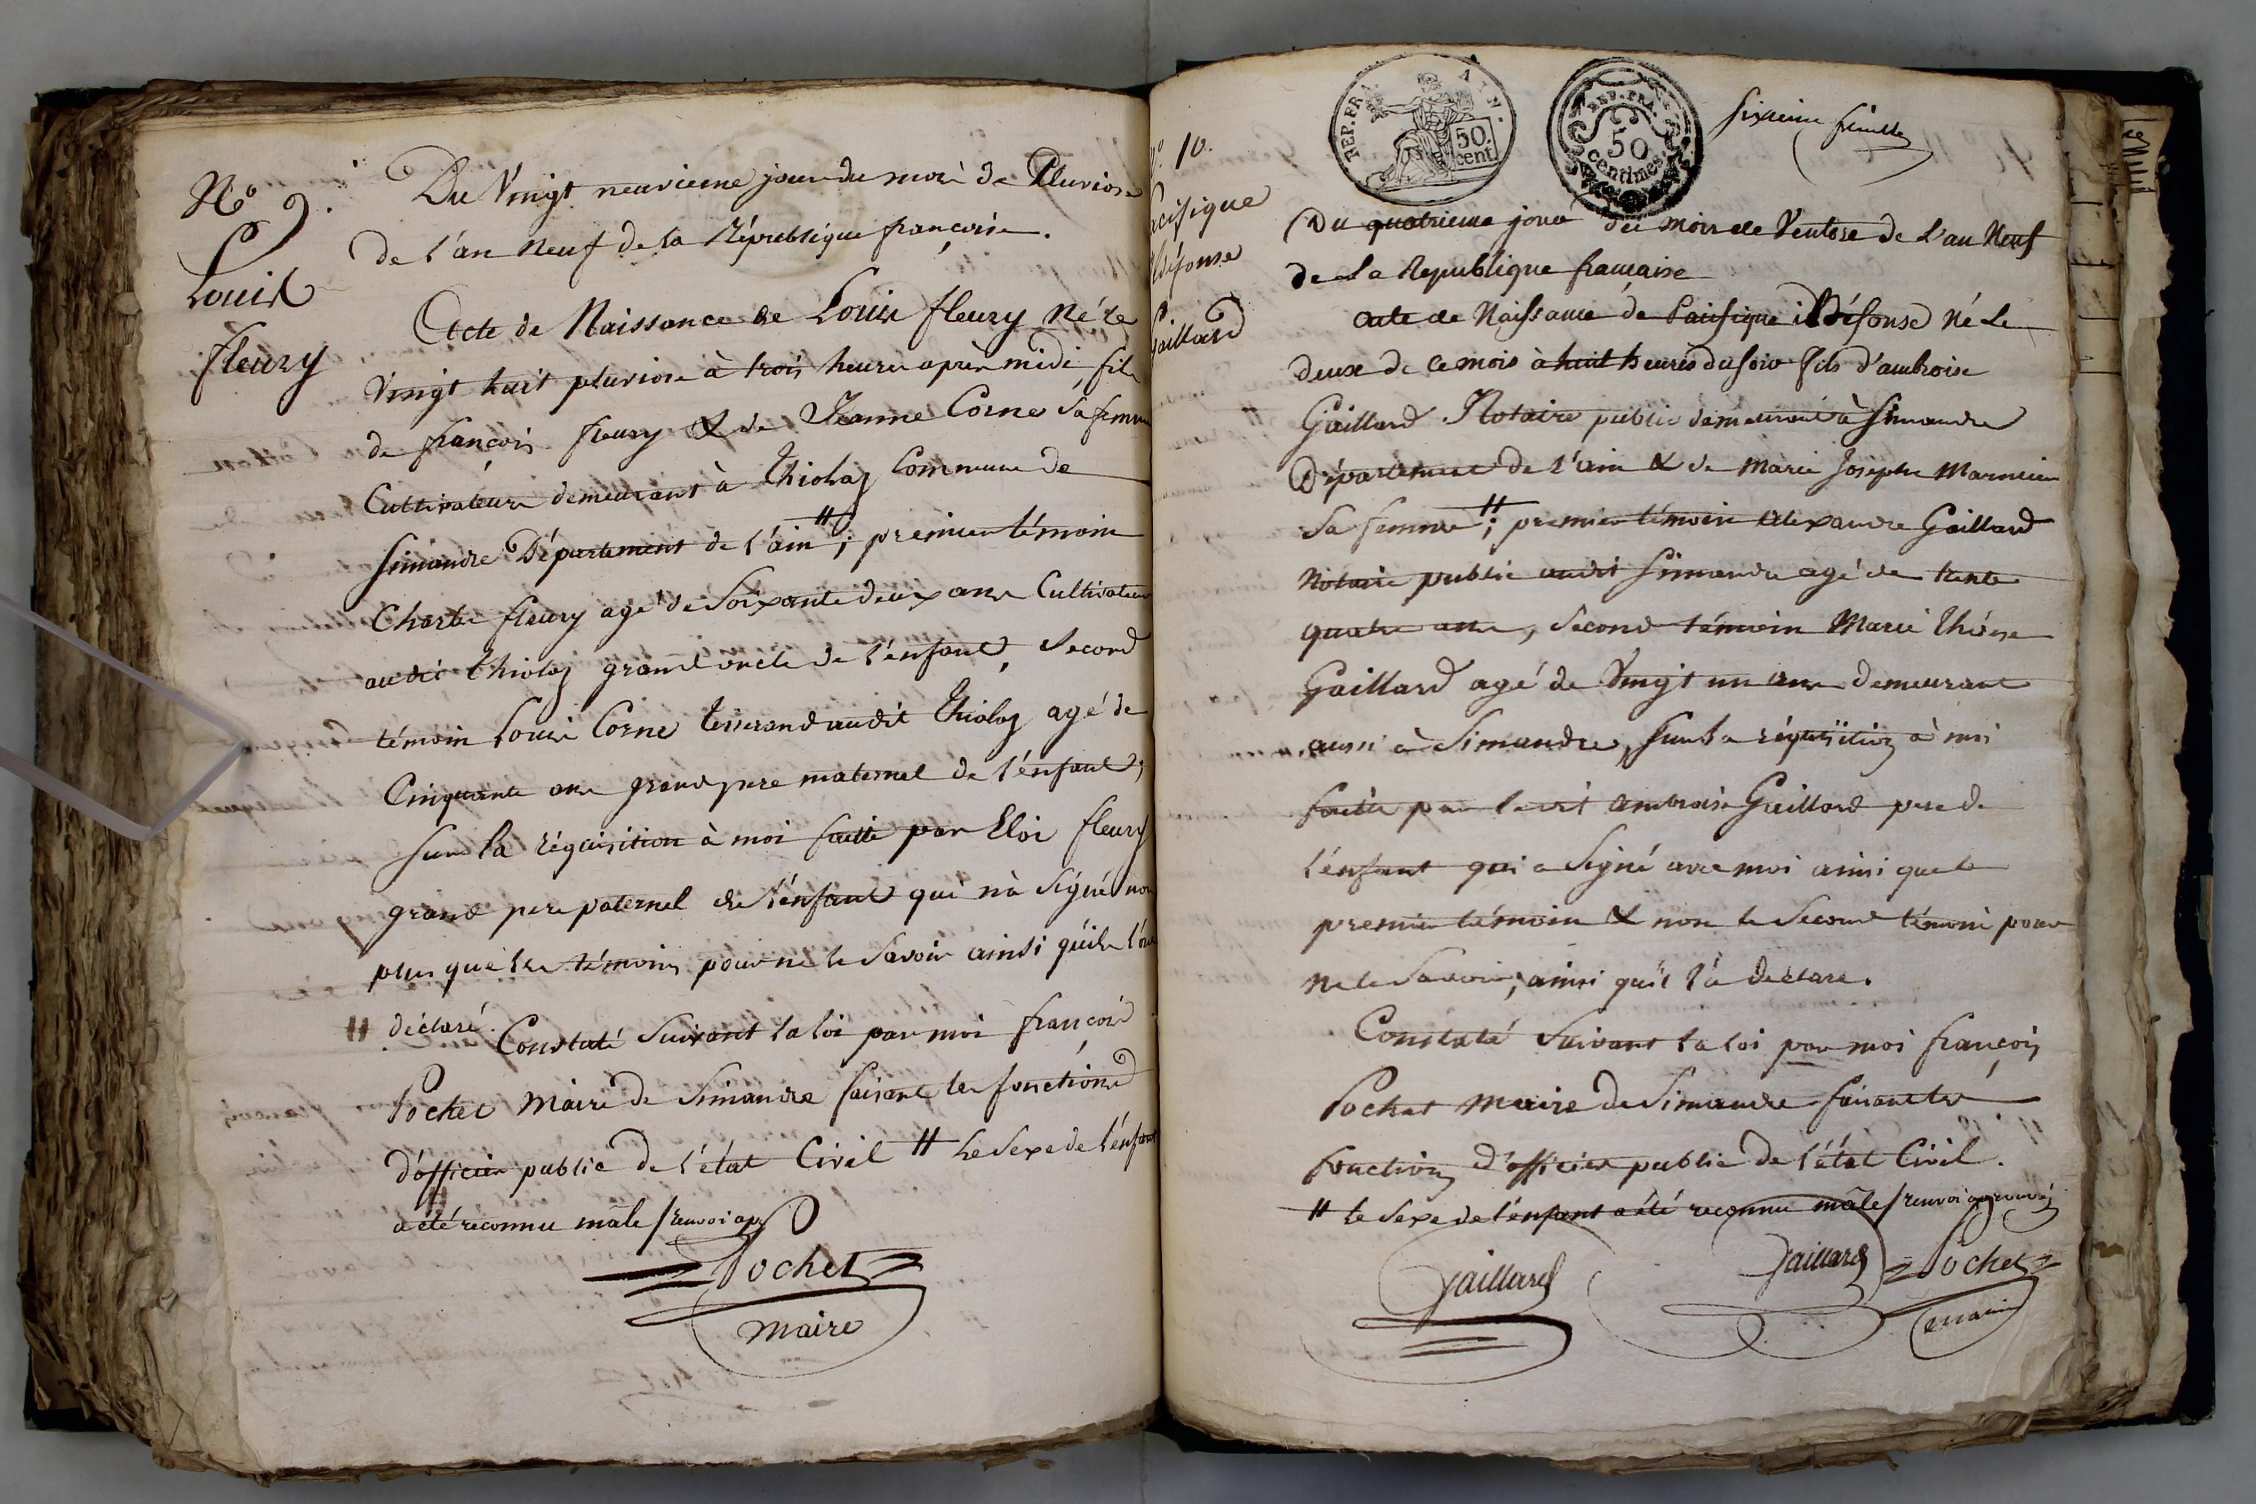 N° 9.
Louis
fleury
Du Vingt neuvieme jour du mois de Pluviose
de l'an Neuf de la République françoise.
Acte de Naissance de Louis fleury né le
Vingt huit pluviose à trois heures après midi, fils
de françois fleury & de Jeanne Corne sa femme
Cultivateurs demeurant à Thiolaz Commune de
Simandre Département de l'ain ⁄⁄; premier témoin
Charles fleury agé de Soixante deux ans Cultivateur
audit Thiolaz grand oncle de l'enfant, Second
témoin Louis Corne tisserand audit Thiolaz agé de
Cinquante ans grand pere maternel de l'énfant;
Sur la réquisition à moi faitte par Eloi fleury
grand pere paternel de l'énfant qui n'à Signé non
plus que les témoins pour ne le Savoir ainsi qu'ils l'ont
⁄⁄ déclaré.
Constaté Suivant la loi par moi françois
Pochet Maire de Simandre faisant les fonctions
d'officier public de l'état Civil ⁄⁄ Le Sexe de l'énfant
a été reconnu mâle / renvoi app
Pochet
maire
N° 10.
acifique
ldéfonse
Gaillard
REP. FRA
50 cent.
REP. FRA.
50
centimes.
sixieme feuille
Du quatrieme jour du mois de Ventose de L'an Neuf
de La Republique francaise
acte de Naissance de Pacifique ildéfonse né Le
deux de ce mois à huit heures du soir fils d'ambroise
Gaillard Notaire public demeurant à Simandre
Département de l'ain & de marie Josephe Marmier
sa femme ⁄⁄; premier témoin alexandre Gaillard
Notaire public audit Simandre agé de trente
quatre ans, Second témoin Marie Thérese
Gaillard agé de Vingt un ans demeurant
aussi à Simandre, Sur la réquisition à moi
faitte par ledit ambroise Gaillard pere de
l'énfant qui a Signé avec moi ainsi que le
premier témoin & non le Second témoin pour
ne le Savoir; ainsi qu'il l'a déclaré.
Constaté Suivant la loi par moi françois
Pochet maire de Simandre faisant les
fonctions d'officier public de l'état Civil.
⁄⁄ le Sexe de l'énfant a été reconnu mâle / renvoi approuvé
Gaillard
Gaillard
Pochet
maire